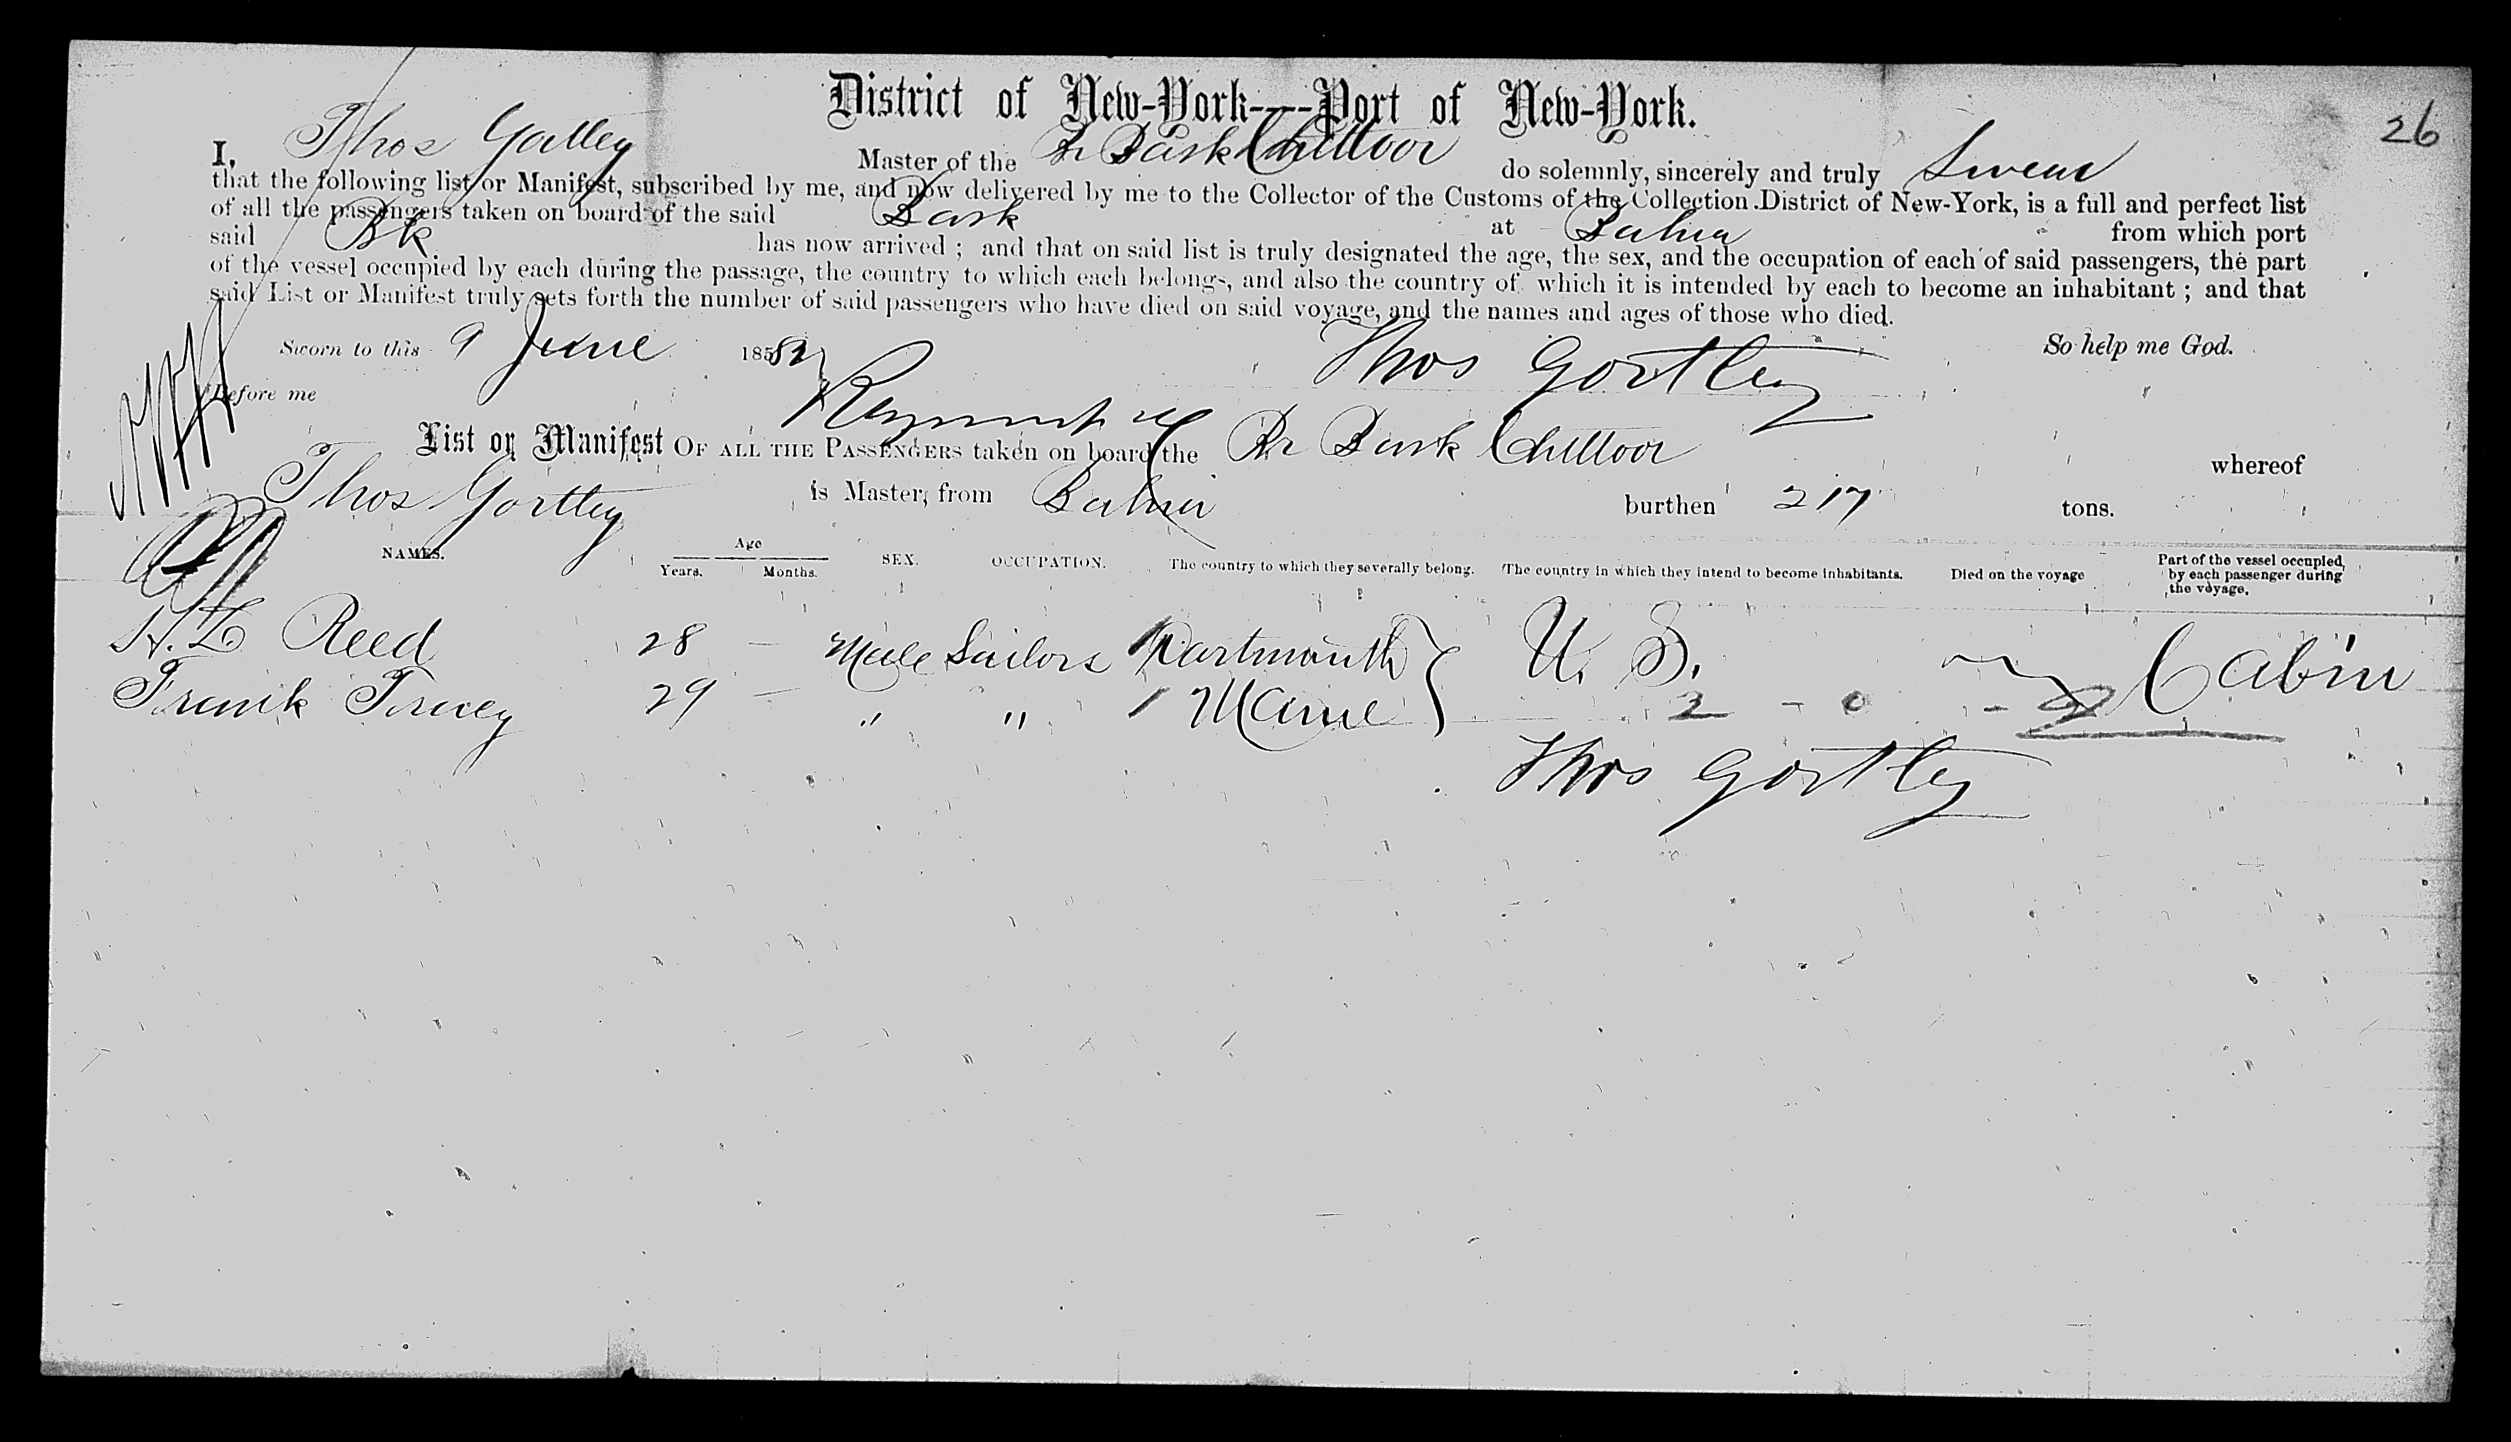 District of New-York----Port of New-York.
26
I, Thos Gortley Master of the Br Bark Chittoor do solemnly, sincerely and truly Swear
that the following list or Manifest, subscribed by me, and now delivered by me to the Collector of the Customs of the Collection District of New-York, is a full and perfect list
of all the passengers taken on board of the said Bark at Bahia from which port
said Bk has now arrived ; and that on said list is truly designated the age, the sex, and the occupation of each of said passengers, the part
of the vessel occupied by each during the passage, the country to which each belongs, and also the country of which it is intended by each to become an inhabitant ; and that
said List or Manifest truly sets forth the number of said passengers who have died on said voyage, and the names and ages of those who died.
Sworn to this 9 June 1858 Thos Gortley So help me God.
Before me
List or Manifest OF ALL THE PASSENGERS taken on board the Br Bark Chittoor whereof
Thos Gortley is Master, from Bahia burthen 217 tons.
NAMES. Age Years. Months. SEX. OCCUPATION. The country to which they severally belong. The country in which they intend to become inhabitants. Died on the voyage Part of the vessel occupied by each passenger during the voyage.
H. L Reed 28 — Male Sailors Dartmouth U. S. Cabin
Frank 29 — " " 1 Maine 2 - 0 - 2
Thos Gortley